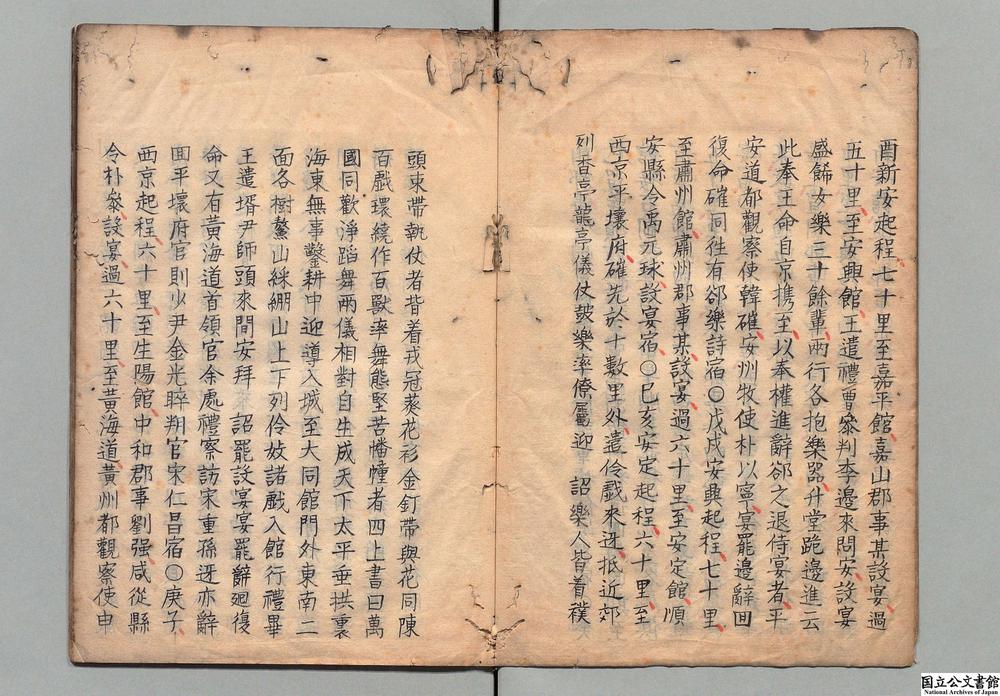 酉新安起程七十里至嘉平館嘉山郡事某設宴過
五十里至安興館王遣禮曹叅判李邊來問安設宴
盛餙女樂三十餘輩兩行各抱樂器升堂跪邊進云
此奉王命自京携至以奉權進辭郤之退侍宴者平
安道都觀察使韓確安州牧使朴以寧宴罷邊辭回
復命確同徃有郤樂詩宿〇戊戌安興起程七十里
至肅州館肅州郡事某設宴過六十里至安定館順
安縣令禹元球設宴宿〇巳亥安定起程六十里至
西京平壤府確先於十數里外遣伶戲來迓抵近郊
列香亭龍亭儀仗皷樂率僚屬迎 詔樂人皆着襆
頭束帶執仗者皆着戎冠葵花衫金釘帶與花同陳
百戲環繞作百獸率舞態堅苦幡幢者四上書曰萬
國同歡浄蹈舞兩儀相對自生成天下太平垂拱裏
海東無事鑿耕中迎導入城至大同館門外東南二
面各樹鰲山綵綳山上下列伶妓諸戲入館行禮畢
王遣壻尹師頭來間安拜 詔罷設宴宴罷辭廻復
命又有黃海道首領官余處禮察訪宋重孫迓亦辭
囬平壤府官則少尹金光睟判官宋仁昌宿〇庚子
西京起程六十里至生陽館中和郡事劉强咸從縣
令朴叅設宴過六十里至黃海道黃州都觀察使申
国立公文書館
National Archives of Japan